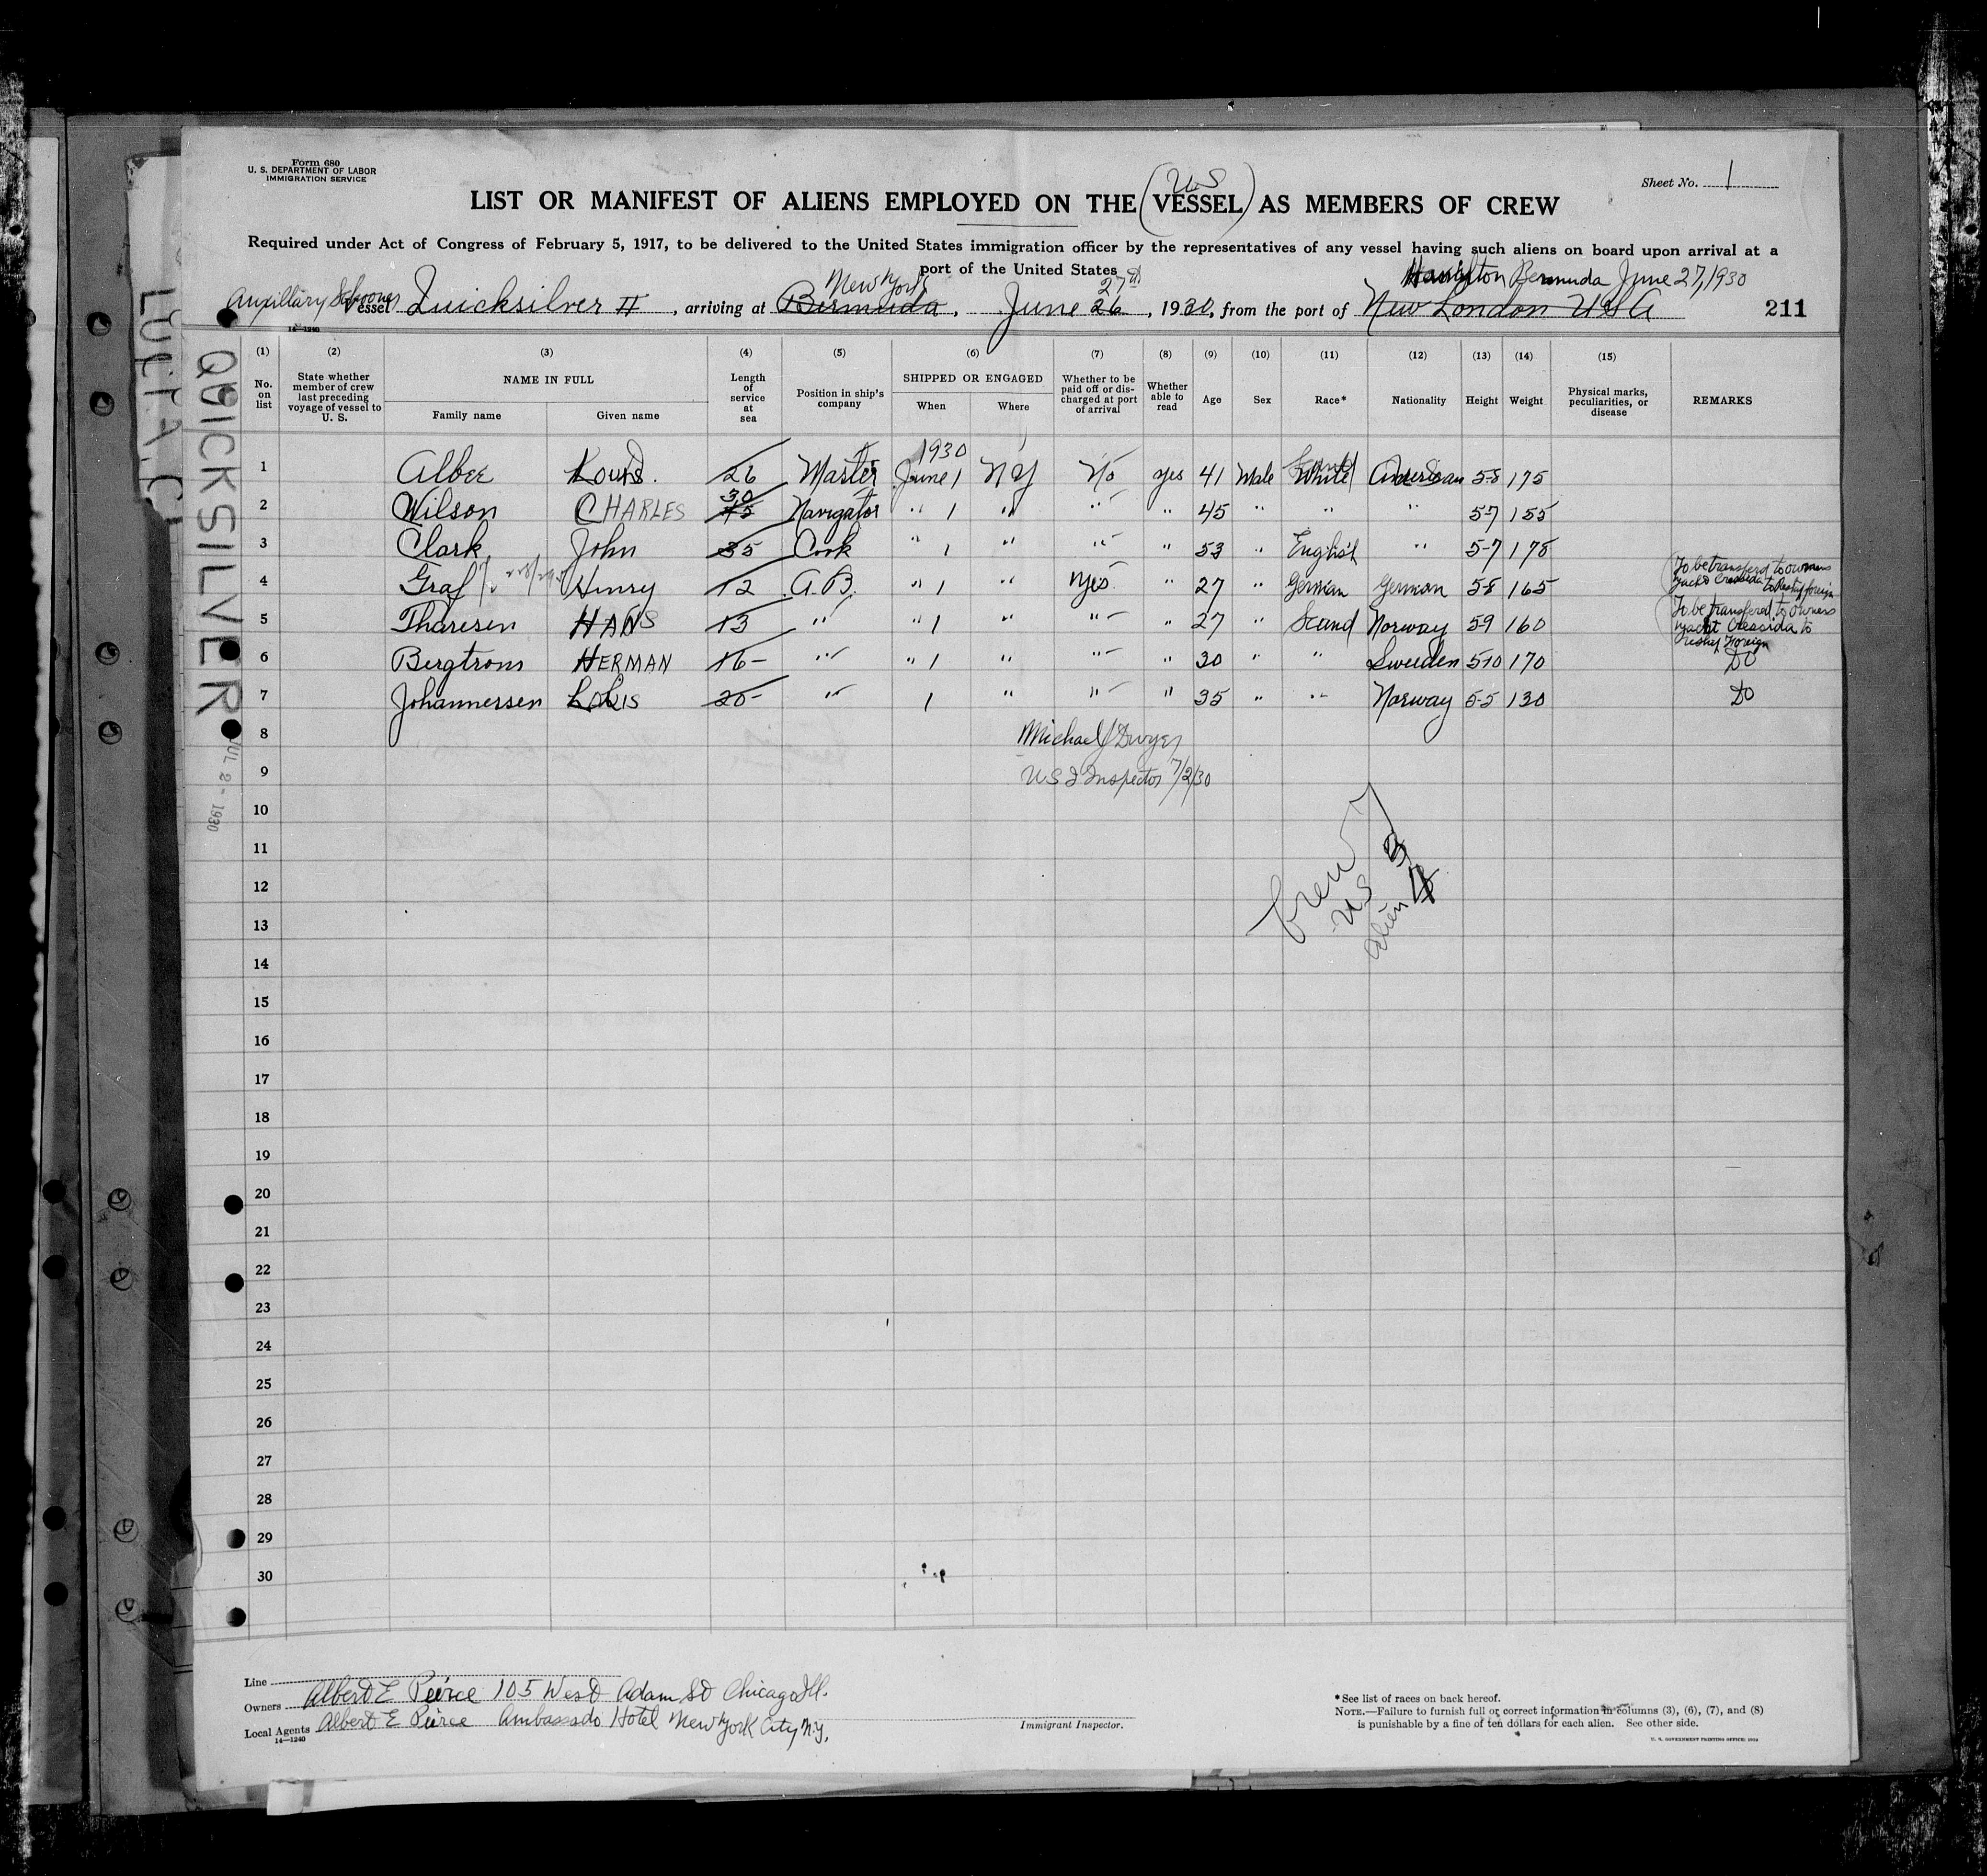 Form 680
U. S. DEPARTMENT OF LABOR
IMMIGRATION SERVICE
Sheet No. 1
U S
LIST OR MANIFEST OF ALIENS EMPLOYED ON THE (VESSEL) AS MEMBERS OF CREW
Required under Act of Congress of February 5, 1917, to be delivered to the United States immigration officer by the representatives of any vessel having such aliens on board upon arrival at a
port of the United States
New York 27th Hamilton Bermuda June 27, 1930
Auxillary Schooner Vessel Quicksilver II, arriving at Bermuda, June 26, 1930, from the port of New London USA 211
14—1240
QUICKSILVER
JUL 2 - 1930
(1) (2) (3) (4) (5) (6) (7) (8) (9) (10) (11) (12) (13) (14) (15)
No. on list
State whether member of crew last preceding voyage of vessel to U. S.
NAME IN FULL
Family name Given name
Length of service at sea
Position in ship's company
SHIPPED OR ENGAGED
When Where
Whether to be paid off or discharged at port of arrival
Whether able to read
Age Sex Race* Nationality Height Weight
Physical marks, peculiarities, or disease
REMARKS
1930
1 Alber Louis. 26 Master June 1 NY No yes 41 Male White American 5-8 175
30
2 Wilson CHARLES 45 Navigator " 1 " " " 45 " " " 5-7 155
3 Clark John 35 Cook " 1 " " " 53 " English " 5-7 178
4 Graf Henry 12 A.B. " 1 " Yes " 27 " German German 5-8 165 To be transferd to owners yacht Cressida to foreign
5 Tharesen HANS 13 " " 1 " " " 27 " Scand Norway 5-9 160 To be transfered to owners yacht Cressida to reship Foreign
6 Bergtrom HERMAN 16- " " 1 " " " 30 " " Sweden 5-10 170 DO
7 Johannersen LOUIS 20- " 1 " " " 35 " " Norway 5-5 130 DO
8 Michael J Dwyer
9 US I Inspector 7/2/30
10
11
12
13
14
15
16
17
18
19
20
21
22
23
24
25
26
27
28
29
30
Crew 7
US 3
alien 4
Line
Owners Albert E Peirce 105 West Adam St Chicago Ill.
Local Agents Albert E Peirce Ambassado Hotel New York City N.Y.
14—1240
Immigrant Inspector.
*See list of races on back hereof.
NOTE.—Failure to furnish full or correct information in columns (3), (6), (7), and (8)
is punishable by a fine of ten dollars for each alien. See other side.